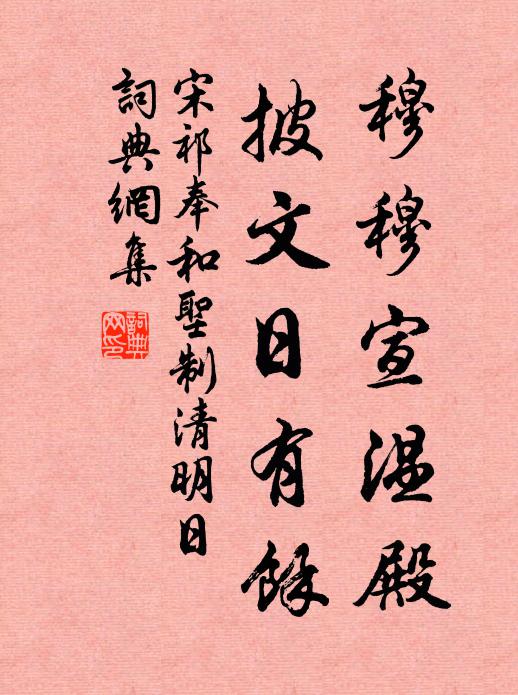 穆穆宣温殿
披文日有餘
宋祁奉和聖制清明日
詞典網集
詞典網印